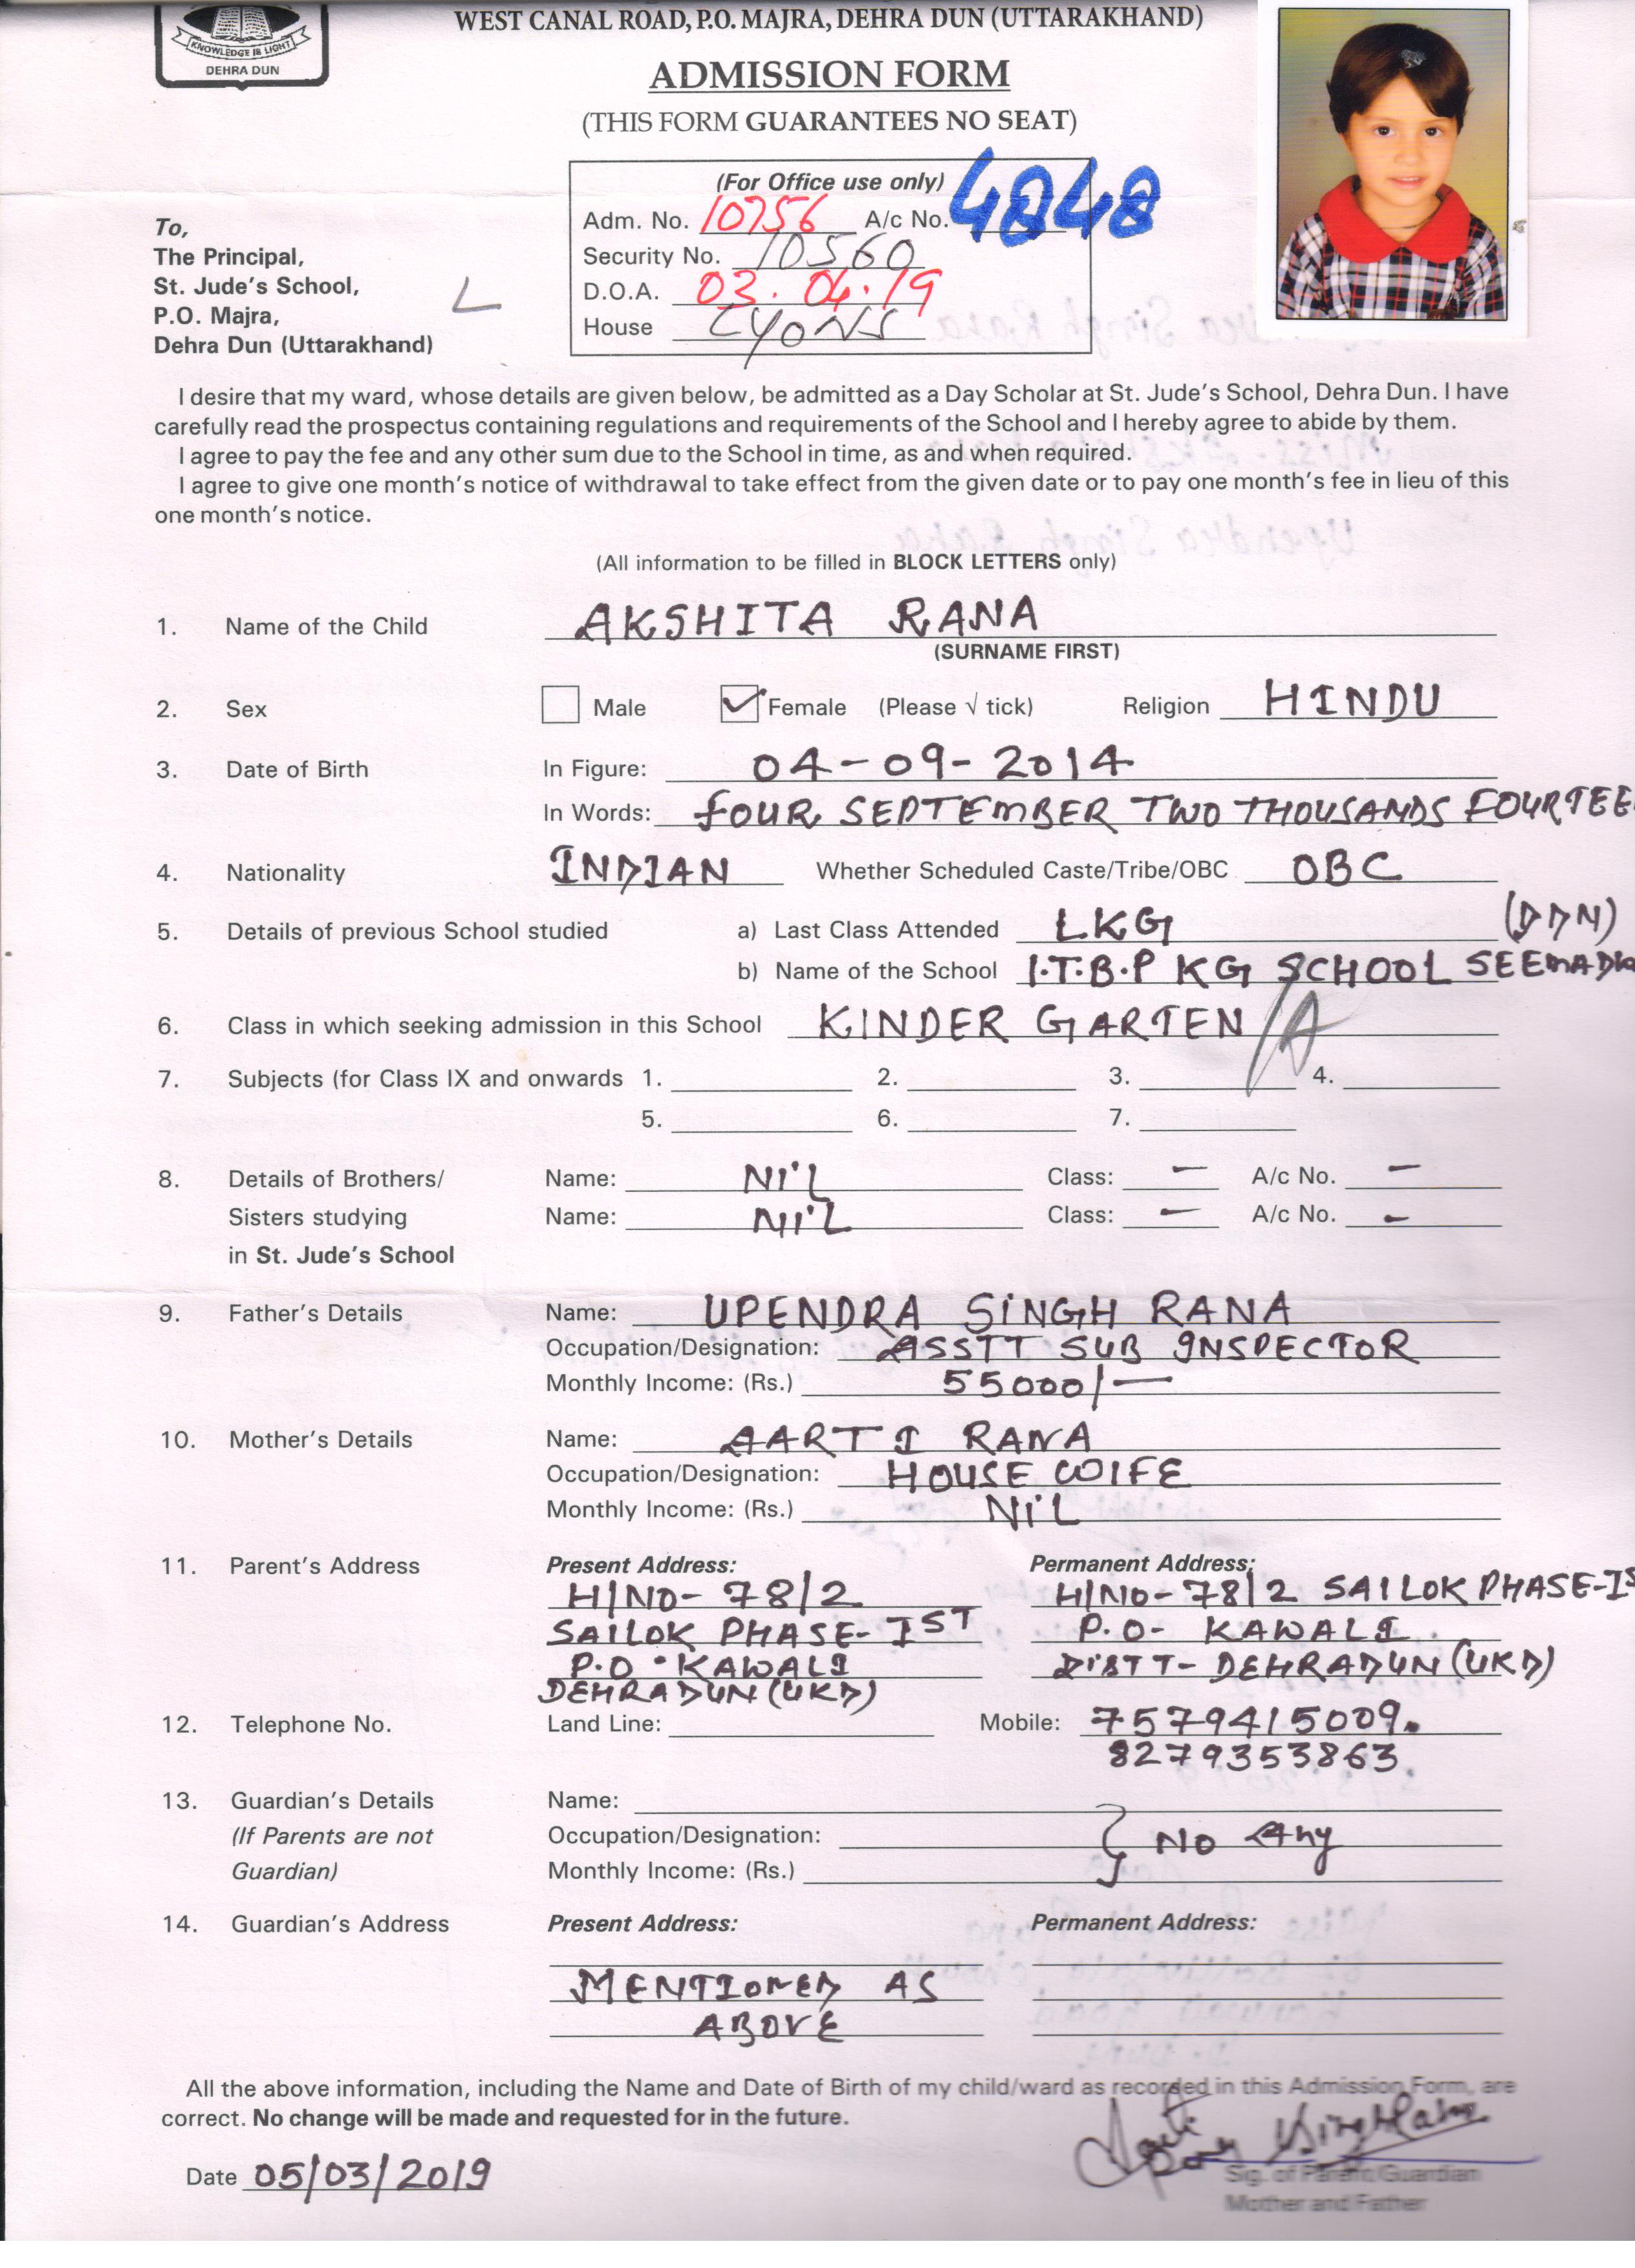 KNOWLEDGE IS LIGHT
DEHRA DUN
WEST CANAL ROAD, P.O. MAJRA, DEHRA DUN (UTTARAKHAND)
ADMISSION FORM
(THIS FORM GUARANTEES NO SEAT)
(For Office use only)
Adm. No. 10756 A/c No. 4848
Security No. 10560
D.O.A. 03.04.19
House LYONS
To,
The Principal,
St. Jude's School,
P.O. Majra,
Dehra Dun (Uttarakhand)
L
I desire that my ward, whose details are given below, be admitted as a Day Scholar at St. Jude's School, Dehra Dun. I have
carefully read the prospectus containing regulations and requirements of the School and I hereby agree to abide by them.
I agree to pay the fee and any other sum due to the School in time, as and when required.
I agree to give one month's notice of withdrawal to take effect from the given date or to pay one month's fee in lieu of this
one month's notice.
(All information to be filled in BLOCK LETTERS only)
1. Name of the Child AKSHITA RANA
(SURNAME FIRST)
2. Sex Male Female (Please √ tick) Religion HINDU
3. Date of Birth In Figure: 04-09-2014
In Words: FOUR SEPTEMBER TWO THOUSANDS FOURTEE
4. Nationality INDIAN Whether Scheduled Caste/Tribe/OBC OBC
5. Details of previous School studied a) Last Class Attended LKG (DDN)
b) Name of the School I.T.B.P KG SCHOOL SEEMADW
6. Class in which seeking admission in this School KINDER GARTEN /A
7. Subjects (for Class IX and onwards 1. 2. 3. 4.
5. 6. 7.
8. Details of Brothers/ Name: NIL Class: — A/c No. —
Sisters studying Name: NIL Class: — A/c No. —
in St. Jude's School
9. Father's Details Name: UPENDRA SINGH RANA
Occupation/Designation: ASSTT SUB INSPECTOR
Monthly Income: (Rs.) 55000/—
10. Mother's Details Name: AARTI RANA
Occupation/Designation: HOUSE WIFE
Monthly Income: (Rs.) NIL
11. Parent's Address Present Address: Permanent Address:
H/NO- 78/2 H/NO- 78/2 SAILOK PHASE-IS
SAILOK PHASE- IST P.O- KAWALI
P.O - KAWALI DISTT- DEHRADUN (UKD)
DEHRADUN (UKD)
12. Telephone No. Land Line: Mobile: 7579415009.
8279353863
13. Guardian's Details Name:
(If Parents are not Occupation/Designation: } No Any
Guardian) Monthly Income: (Rs.)
14. Guardian's Address Present Address: Permanent Address:
MENTIONED AS
ABOVE
All the above information, including the Name and Date of Birth of my child/ward as recorded in this Admission Form, are
correct. No change will be made and requested for in the future.
Date 05/03/2019
Sig. of Parent/Guardian
Mother and Father